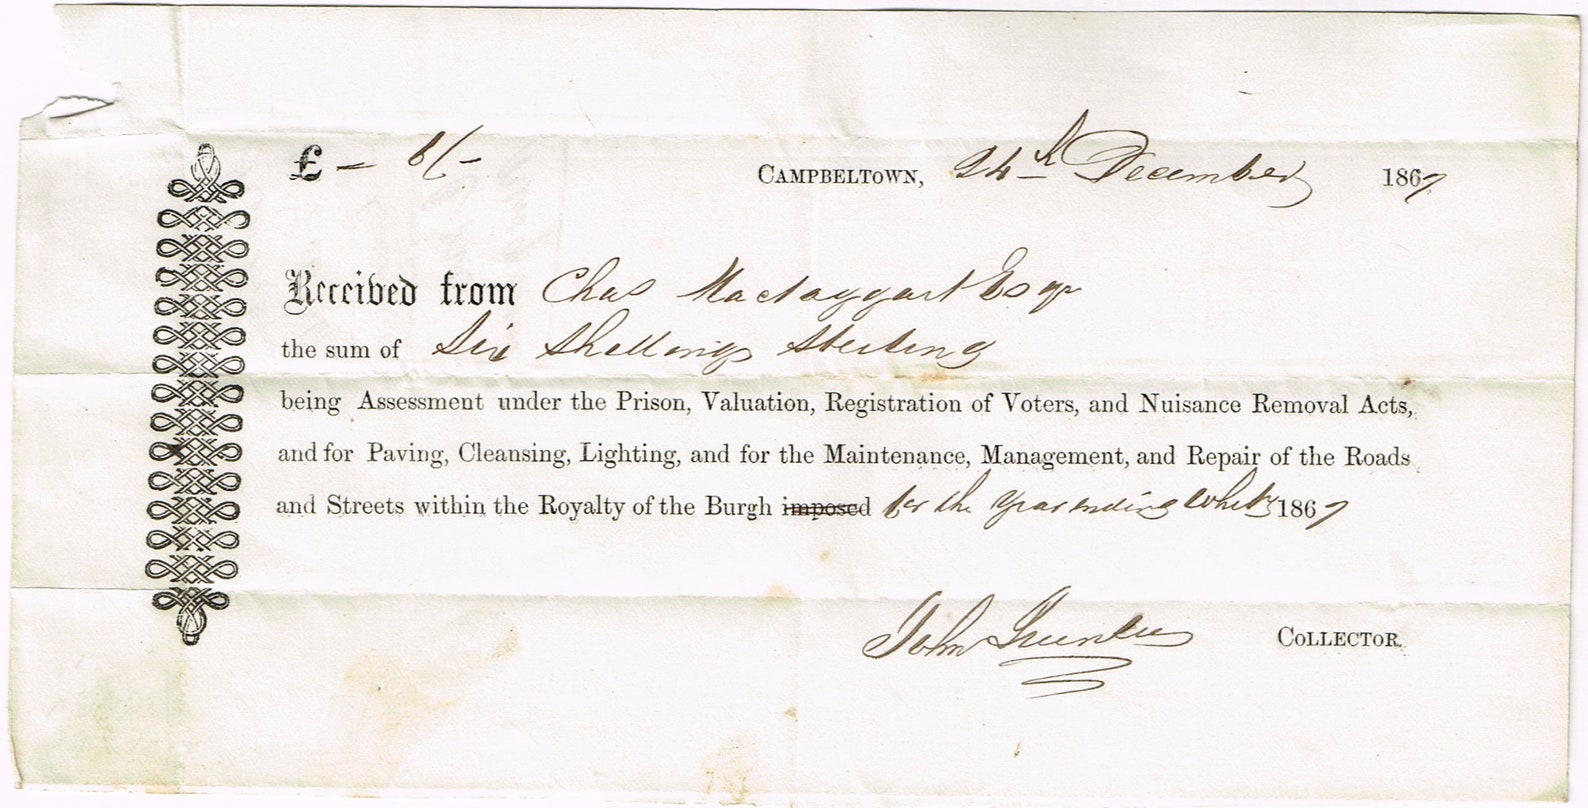 £ – 6/-
CAMPBELTOWN, 24th December 1867
Received from Chas Mactaggart Esqr
the sum of Six Shillings Sterling
being Assessment under the Prison, Valuation, Registration of Voters, and Nuisance Removal Acts,
and for Paving, Cleansing, Lighting, and for the Maintenance, Management, and Repair of the Roads
and Streets within the Royalty of the Burgh imposed for the year ending Whity 1867
John COLLECTOR.